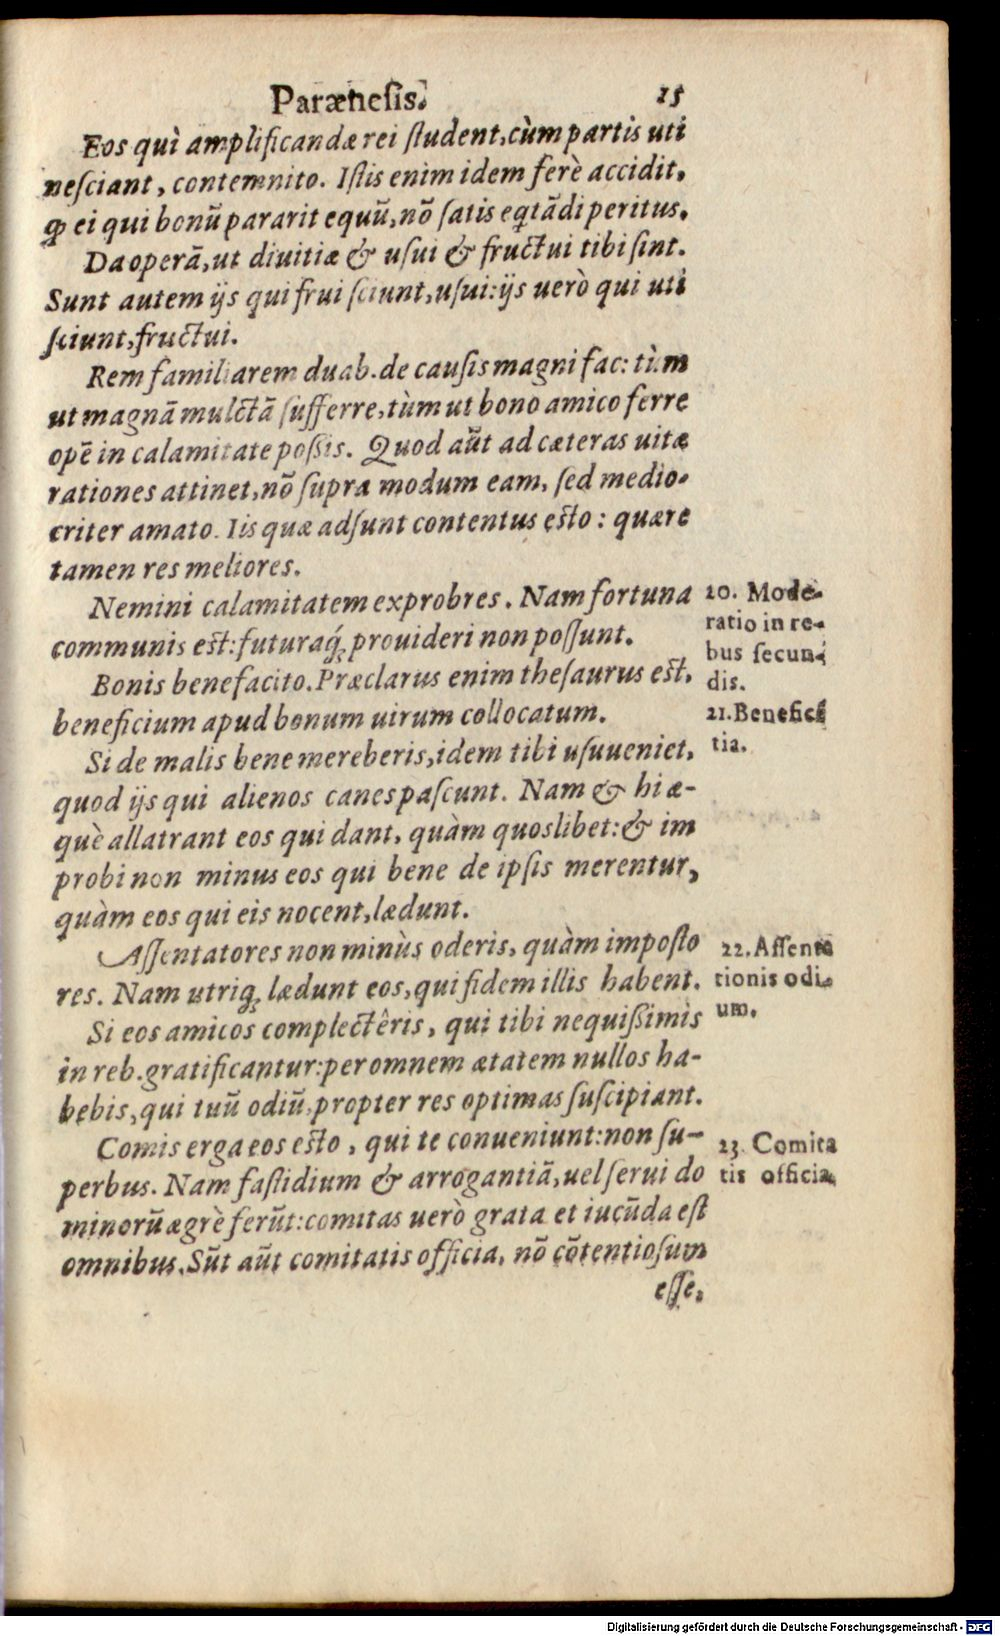 Parænesis.
15
Eos quì amplificandæ rei ſtudent, cùm partis uti
neſciant, contemnito. Iſtis enim idem ferè accidit,
qꝫ ei qui bonũ pararit equũ, nõ ſatis eqtãdi peritus.
Da operã, ut diuitiæ & uſui & fructui tibi ſint.
Sunt autem ijs qui frui ſciunt, uſui: ijs uerò qui uti
ſciunt, fructui.
Rem familiarem duab. de cauſis magni fac: tùm
ut magnã mulctã ſufferre, tùm ut bono amico ferre
opẽ in calamitate poſſis. Quod aũt ad cæteras uitæ
rationes attinet, nõ ſupra modum eam, ſed medio-
criter amato. Iis quæ adſunt contentus eſto: quære
tamen res meliores.
Nemini calamitatem exprobres. Nam fortuna
communis eſt: futuraq́ꝫ prouideri non poſſunt.
Bonis benefacito. Præclarus enim theſaurus eſt,
beneficium apud bonum uirum collocatum.
Si de malis bene mereberis, idem tibi uſuueniet,
quod ijs qui alienos canes paſcunt. Nam & hi æ-
què allatrant eos qui dant, quàm quoslibet: & im
probi non minus eos qui bene de ipſis merentur,
quàm eos qui eis nocent, lædunt.
Aſſentatores non minùs oderis, quàm impoſto
res. Nam utriqꝫ lædunt eos, qui fidem illis habent.
Si eos amicos complectêris, qui tibi nequiſſimis
in reb. gratificantur: per omnem ætatem nullos ha-
bebis, qui tuũ odiũ, propter res optimas ſuſcipiant.
Comis erga eos eſto, qui te conueniunt: non ſu-
perbus. Nam faſtidium & arrogantiã, uel ſerui do
minorũ ægrè ferũt: comitas uerò grata et iucũda eſt
omnibus. Sũt aũt comitatis officia, nõ cõtentioſum
eſſe,
20. Mode-
ratio in re-
bus ſecun-
dis.
21. Benefice
tia.
22. Aſſenta
tionis odi-
um.
23. Comita
tis officia.
Digitalisierung gefördert durch die Deutsche Forschungsgemeinschaft - DFG